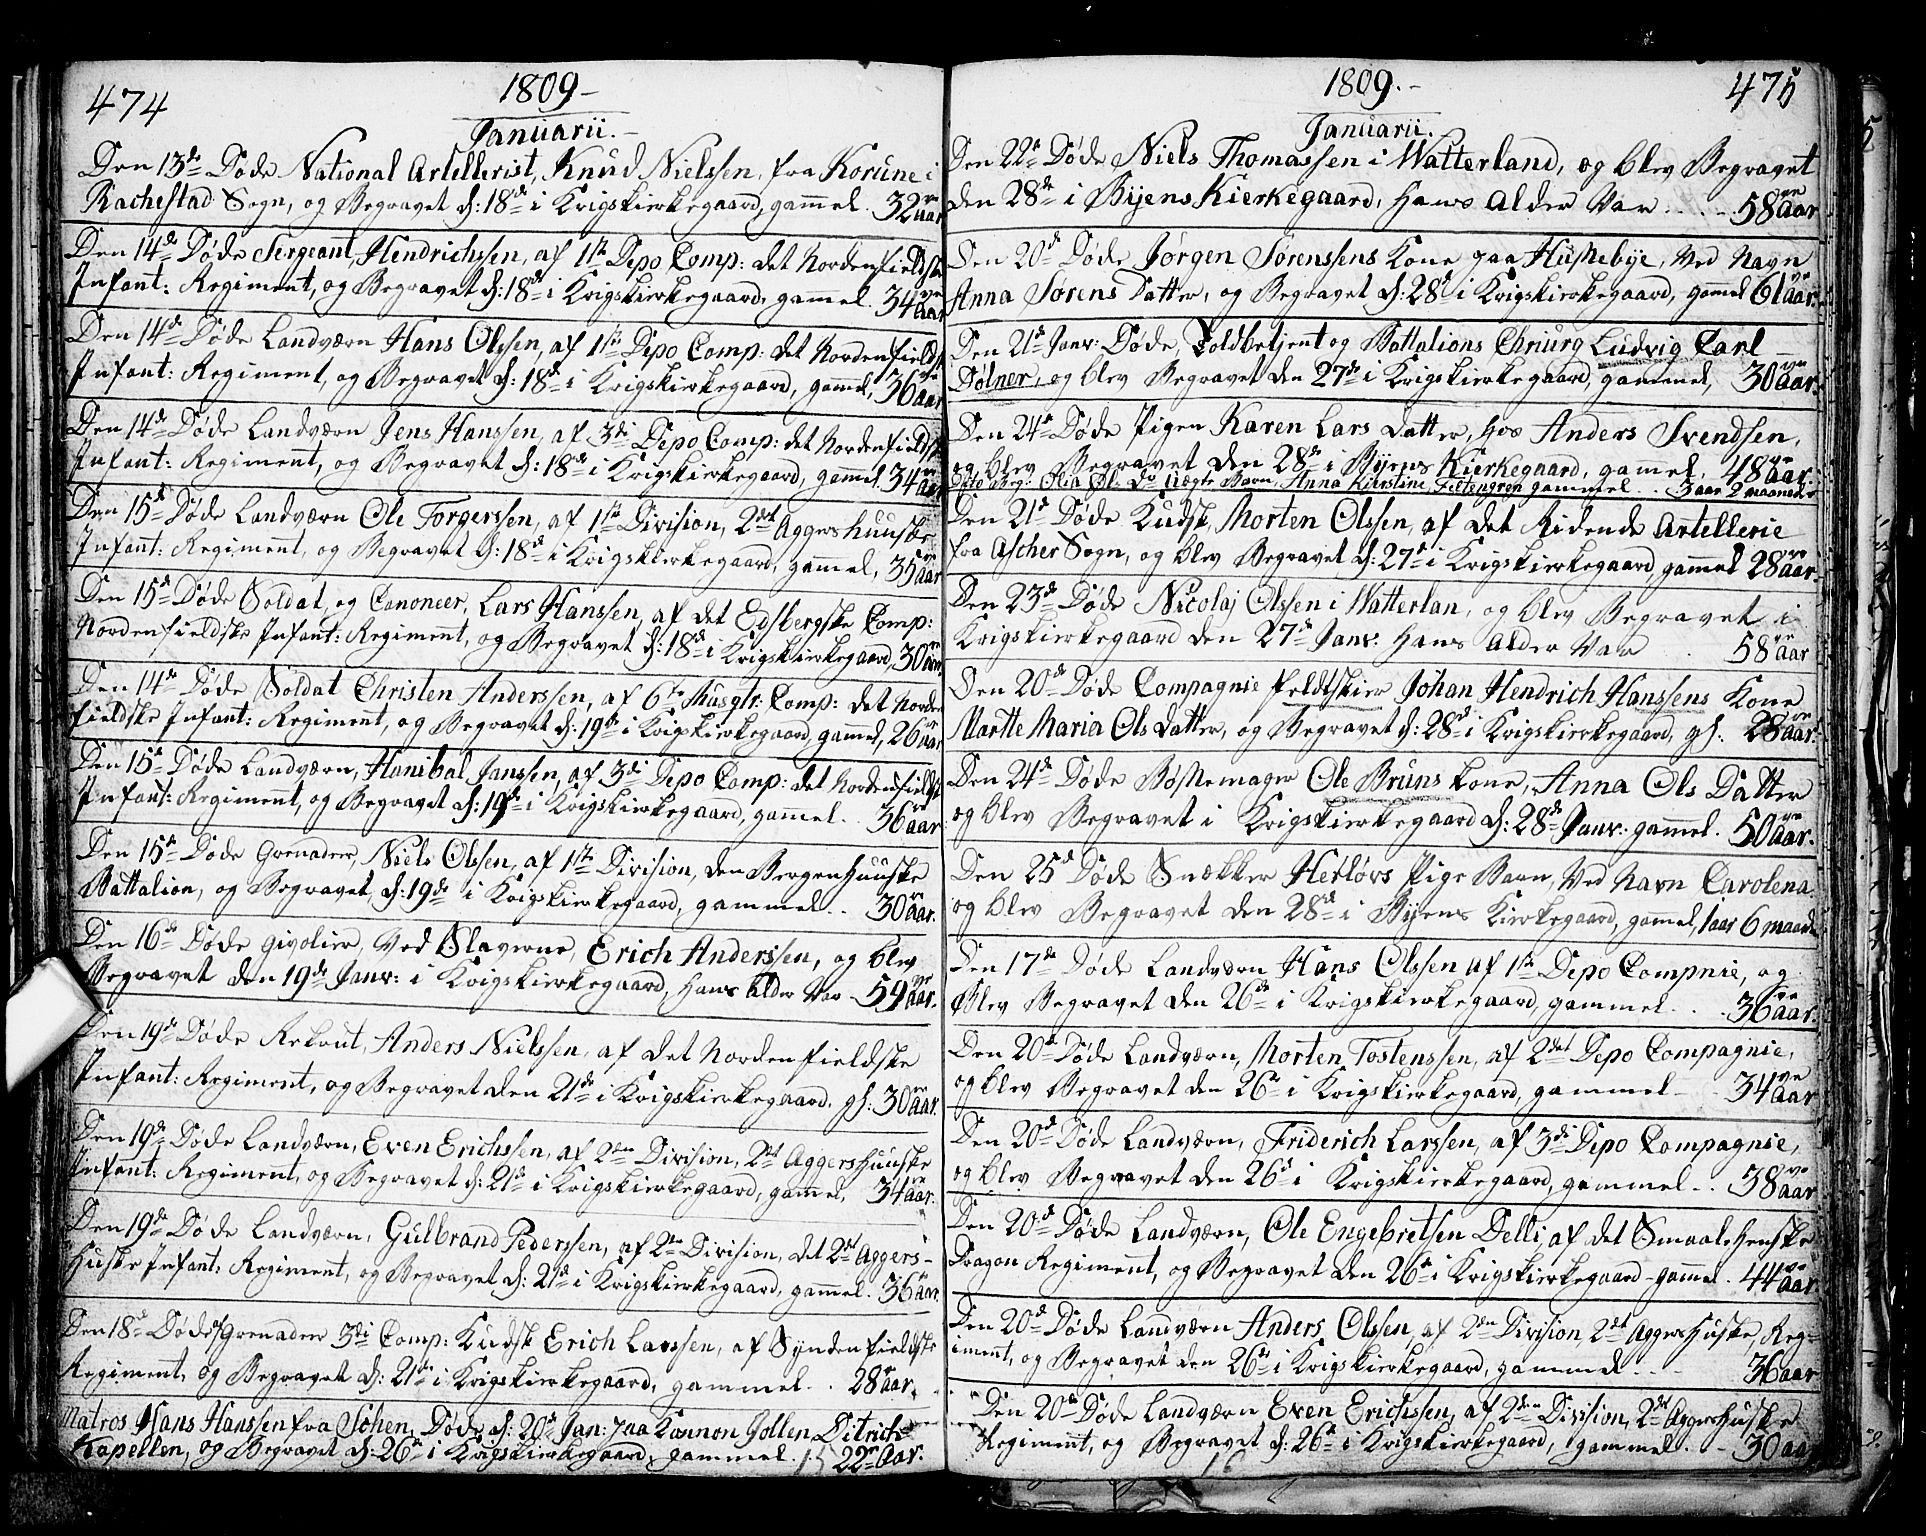 474
1809-
Januarii.-
Den 13de Døde National Artellerist, Knud Nielssen, fra Korune i
Rachestad Sogn, og Begravet d: 18de i Krigskierkegaard, gammel. 32ve aar
Den 14de Døde Sergeant, Hendrichssen, af 1ste Depo Comp: det Nordenfieldske
Infant: Regiment, og Begravet d: 18de i Krigskierkegaard, gamel. 34ve aar
Den 14de Døde Landværn Hans Olssen, af 1ste Depo Comp: det Nordenfields
Infant: Regiment, og Begravet d: 18de i Krigskierkegaard, gammel, 36ve aar
Den 14de Døde Landværn Jens Hanssen, af 3di Depo Comp: det Nordenfieldsk
Infant: Regiment, og Begravet d: 18de i Krigskierkegaard, gammel. 34ve aar
Den 15de Døde Landværn Ole Torgerssen, af 1ste Division, 2det Aggershuuske
Infant: Regiment, og Begravet d: 18de i Krigskierkegaard, gammel, 35ve aar
Den 15de Døde Soldat, og Canoneer, Lars Hanssen, af det Edsbergske Comp:
Nordenfieldske Infant: Regiment, og Begravet d: 18de i Krigskierkegaard, 30ve aar
Den 14de Døde Soldat Christen Anderssen, af 6te Musqtr: Comp: det Norden
fieldske Infant: Regiment, og Begravet d: 19de i Krigskierkegaard, gammel, 26ve aar
Den 15de Døde Landværn, Hanibal Janssen, af 3di Depo Comp: det Nordenfields
Infant: Regiment, og Begravet d: 19de i Krigskierkegaard, gammel. 36ve aar
Den 15de Døde Grenader, Niels Olssen, af 1ste Division, den Bergenhuuske
Battalion, og Begravet, d: 19de i Krigskierkegaard, gammel.. 30ve aar.
Den 16de Døde givolier, Ved Slaverne, Erich Anderssen, og blev
Begravet den 19de Janv: i Krigskierkegaard, Hans alder Var 59ve aar.
Den 19de Døde Rekrut, Anders Nielssen, af det Nordenfieldske
Infant: Regiment, og Begravet den 21de i Krigskierkegaard. gl: 30ve aar.
Den 19de Døde Landværn, Even Erichssen, af 2den Division, 2det Aggershuuske
Infant: Regiment, og Begravet d: 21de i Krigskierkegaard, gammel, 34ve aar.
Den 19de Døde Landværn, Gulbrand Pederssen, af 2den Division, det 2det Aggers-
huske Infant: Regiment, og Begravet d: 21de i Krigskierkegaard, gammel. 36ve aar
Den 18de Døde Grenader 3di Comp: Kudsk Erich Larssen, af Syndenfieldske
Regiment, og Begravet d: 21de i Krigskierkegaard, gammel.. 28ve aar.
Matros Hans Hanssen fra Sohen, Døde d: 20de Jan: paa Kannon Jollen Ditrich
Kapellen, og Begravet d: 26de i Krigskierkegaard, gammel. 22ve Aar.
1809.-
475
Januarii.
Den 22de Døde Niels Thomassen i Watterland, og blev Begravet
den 28de i Byens Kierkegaard, Hans Alder Var.... 58ve aar
Den 20de Døde Jørgen Sørenssens Kone paa Hussebye, Ved Navn
Anna Sørens Datter, og Begravet d: 28de i Krigskierkegaard, gamel 61ve aar.
Den 21de Janv: Døde, Toldbetjent og Battalions Chriurg Ludvig Carl
Dølner, og blev Begravet den 27de i Krigskierkegaard, gammel, 30ve aar.
Den 24de Døde Pigen Karen Lars Datter, hos Anders Svendsen,
og blev Begravet den 28de i Byens Kierkegaard, gamel. 48ve aar.
Dito Beg: Anna Kierstine, Feltengren gammel... 3 aar 2 maaneder
Den 21de Døde Kudsk, Morten Olssen, af det Ridende Artellerie
fra Ascher Sogn, og blev Begravet d: 27de i Krigskierkegaard, gammel 28ve aar.
Den 23de Døde Nicolaj Olssen i Watterlan, og blev Begravet i
Krigskierkegaard den 27de Janv: Hans Alder Var .. 58ve aar
Den 20de Døde Compagnie feldtskier Johan Hendrich Hanssens Kone
Marthe Maria Ols Datter, og Begravet d: 28de i Krigskierkegaard, gl. 28ve aar.
Den 24de Døde Bøssemager Ole Bruns Kone, Anna Ols Datter
og blev Begravet i Krigskierkegaard d: 28de Janv: gammel. 50ve aar.
Den 25de Døde Snækker Herløvs Pige Barn, Ved Navn Carolena
og blev Begravet den 28de i Byens Kierkegaard, gamel, 1 aar 6 maaned
Den 17de Døde Landværn Hans Olssen af 1ste Depo Compnie, og
Blev Begravet den 26de i Krigskierkegaard, gammel... 36ve aar.
Den 20de Døde Landværn, Morten Tostenssen, af 2det Depo Compagnie,
og blev Begravet den 26de i Krigskierkegaard, gammel - 34ve aar
Den 20de Døde Landværn, Friderich Larssen, af 3di Depo Compagnie,
og blev Begravet den 26de i Krigskierkegaard, gammel.. 38ve aar
Den 20de Døde Landværn, Ole Engebretsen Delli, af det Smaalehenske
Dragon Regiment, og Begravet den 26de i Krigskierkegaard-gammel. 44ve aar
Den 20de Døde Landværn Anders Olssen, af 2den Division, 2det Aggershuske, Reg-
iment, og Begravet den 26de i Krigskierkegaard, gammel... 36 aar
Den 20de Døde Landværn Even Erichssen, af 2den Division, 2det Aggershuske
Regiment, og Begravet d: 26de i Krigskierkegaard, gammel. - 30 aar